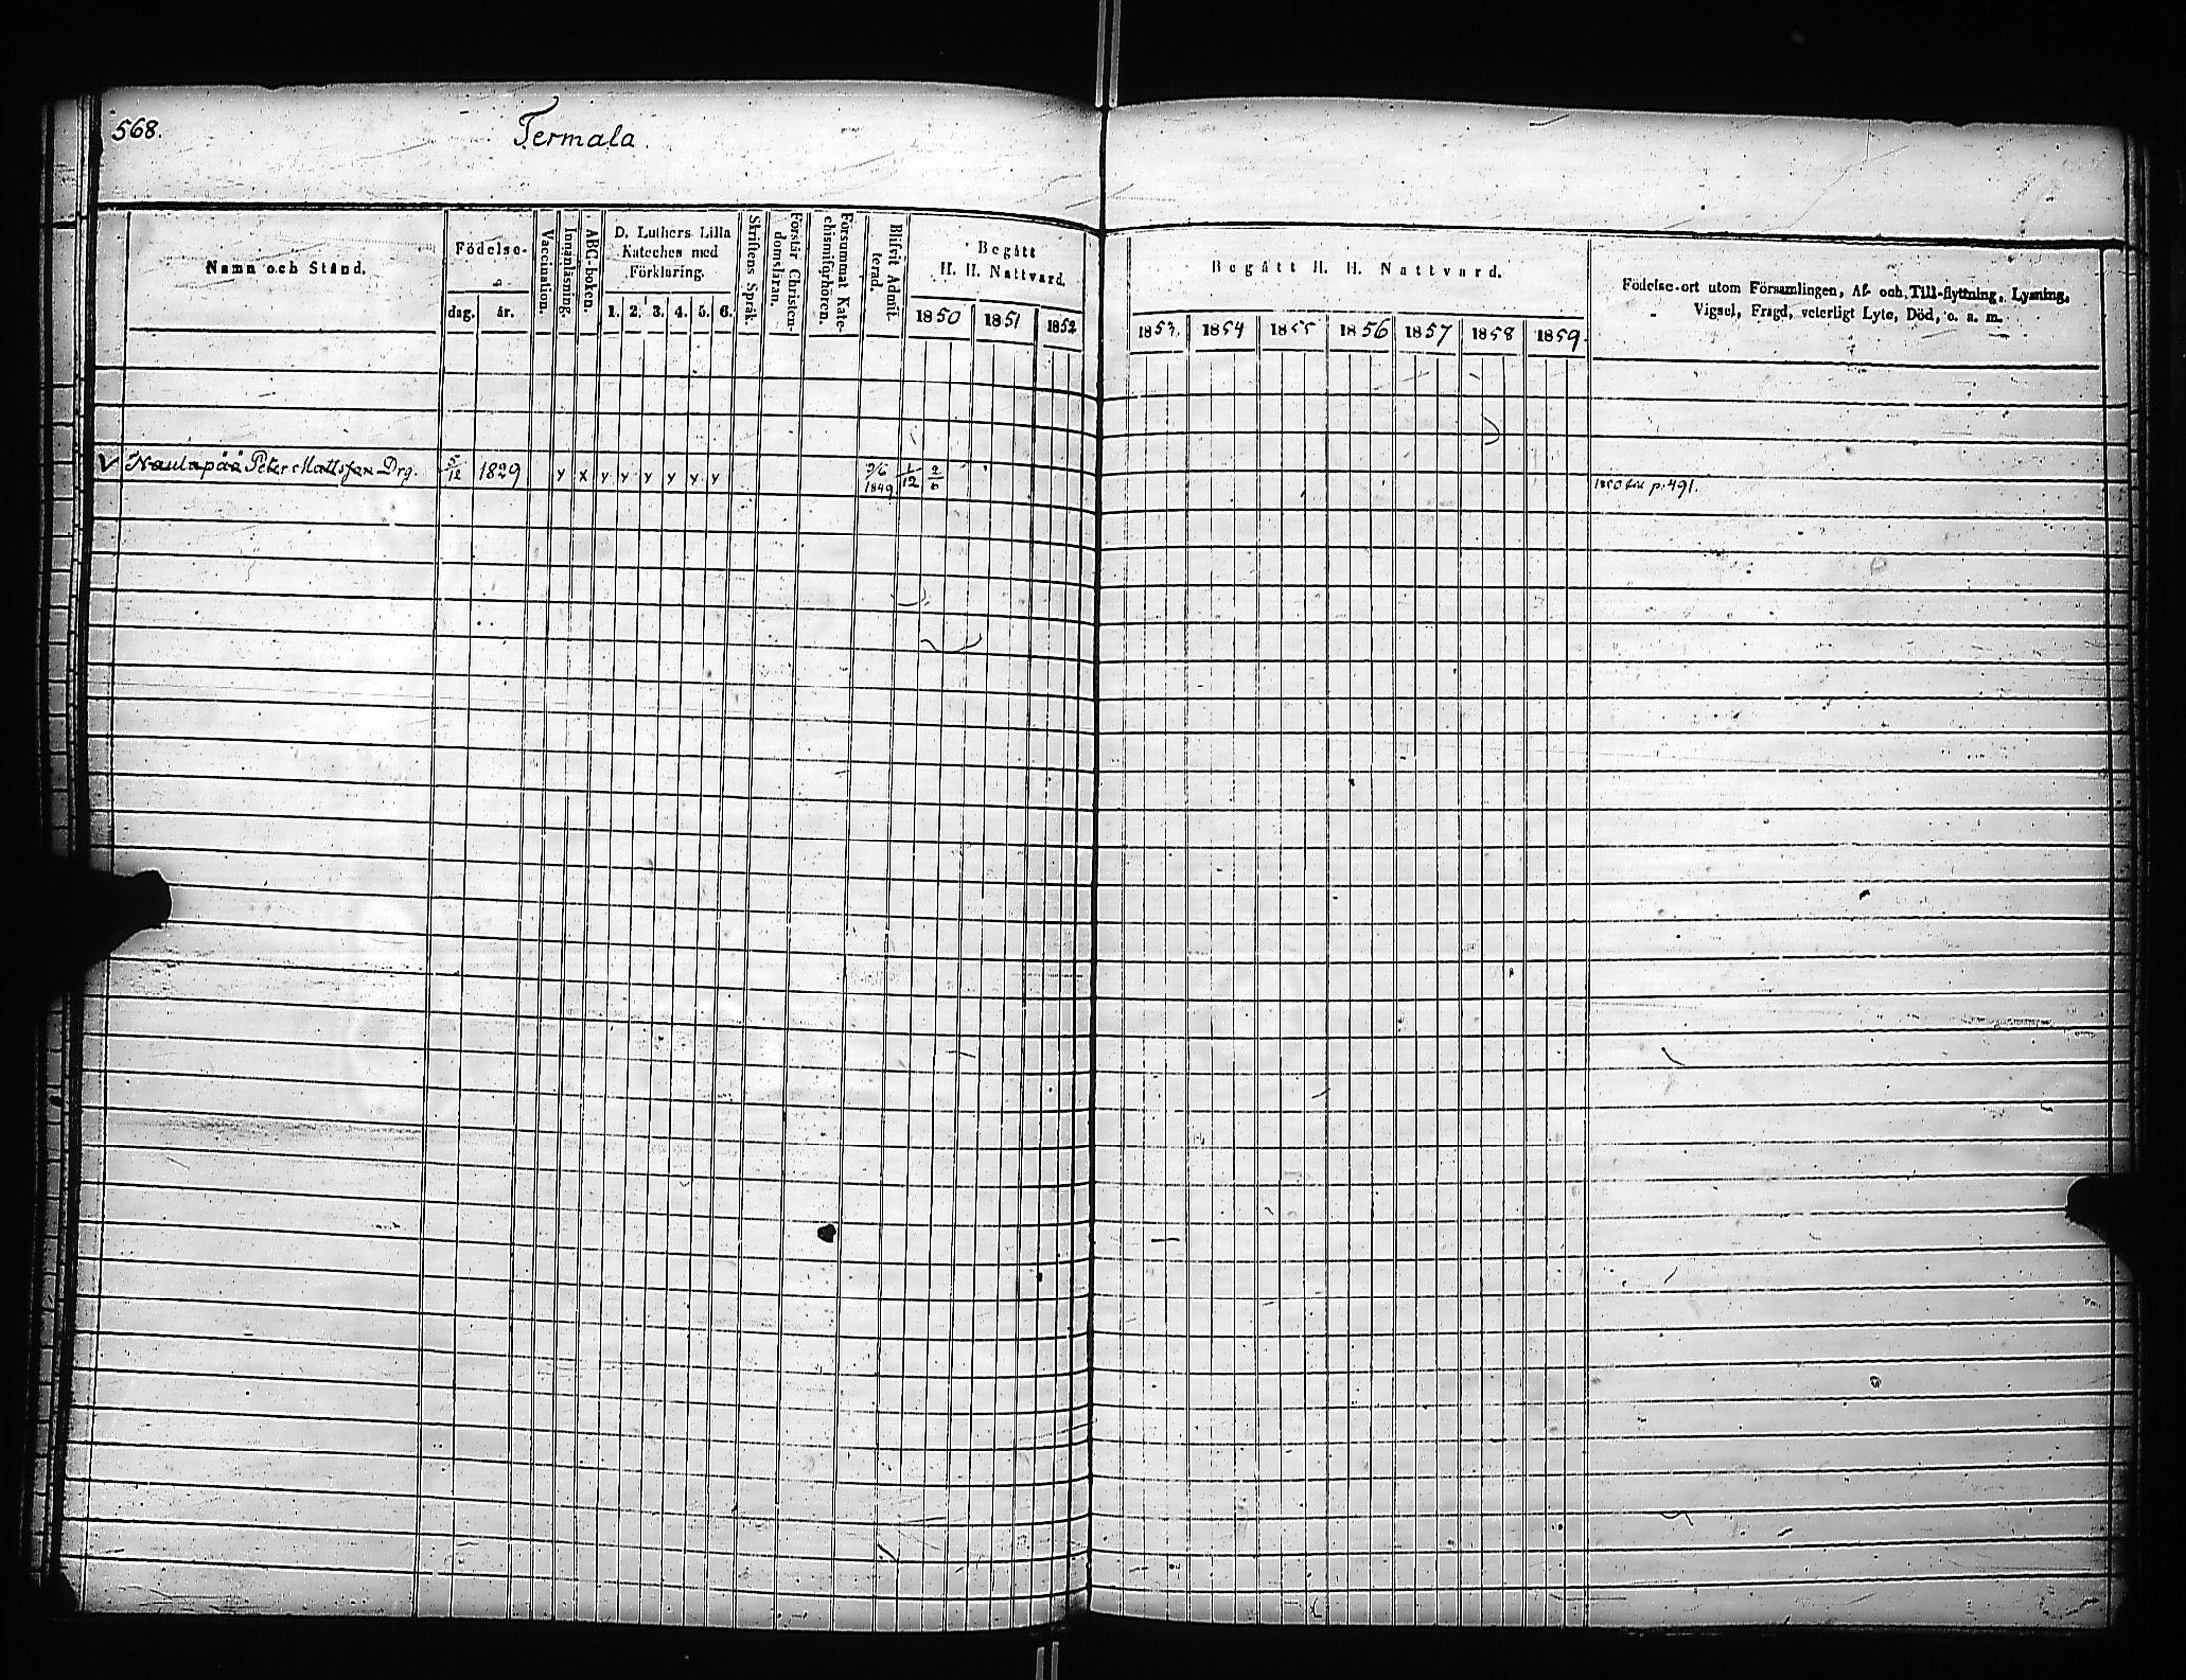 568.
Termala
Namn och Stånd.
Födelse-
dag.
år.
Vaccination.
Innanläsning.
ABC-boken.
D. Luthers Lilla
Kateches med
Förklaring.
1. 2. 3. 4. 5. 6.
Skriftens Språk.
Förstår Christen-
domsläran.
Försummat Kate-
chismiförhören.
Blifvit Admit-
terad.
Begått
H. H. Nattvard.
1850 1851 1852
Begått H. H. Nattvard.
1853. 1854 1855 1856 1857 1858 1859.
Födelse-ort utom Församlingen, Af- och Till-flyttning, Lysning,
Vigsel, Frägd, veterligt Lyte, Död, o. a. m.
V Naulapää Peter Mattsson Drg. 5/12 1829 y x y y y y y y 9/6 1849 1/12 2/6
1850 p. 491.